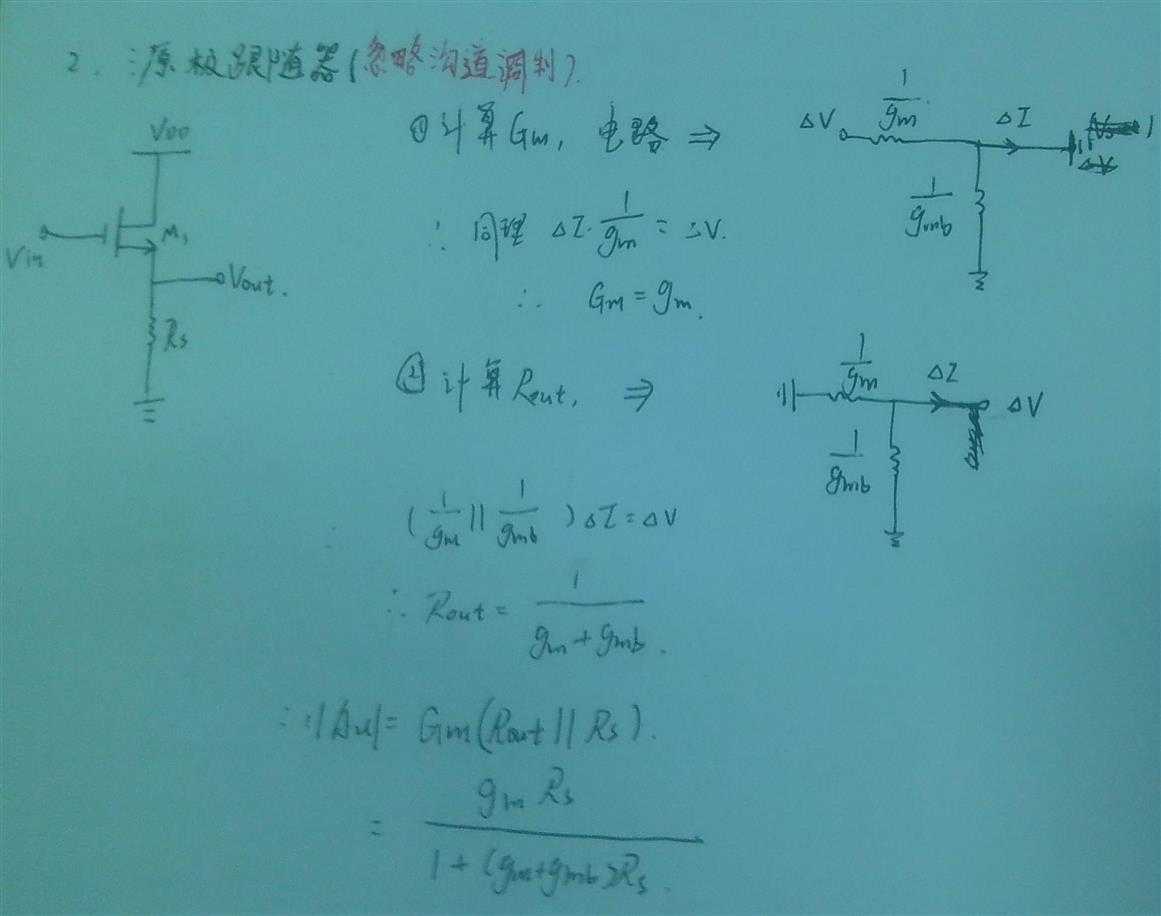 2. 源极跟随器(忽略沟道调制).
VDD
M1
Vin
Vout.
Rs
① 计算Gm, 电路 ⇒
ΔV
1/gm
ΔI
1/gmb
∴ 同理 ΔI·1/gm = ΔV.
∴ Gm = gm.
② 计算Rout, ⇒
1/gm
ΔI
ΔV
1/gmb
(1/gm || 1/gmb) ΔI = ΔV
∴ Rout = 1/(gm + gmb).
∴ |Au| = Gm(Rout || Rs).
= gm Rs / (1 + (gm+gmb)Rs.